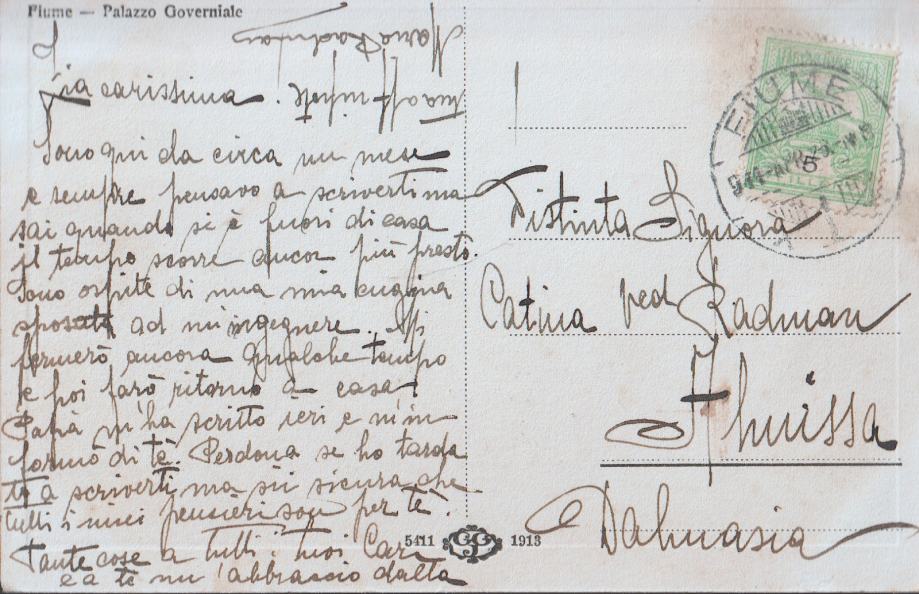 Fiume — Palazzo Governiale
Zia carissima.
Sono qui da circa un mese
e sempre pensavo a scriverti ma
sai quando si è fuori di casa
il tempo scorre ancor più presto.
Sono ospite di una mia cugina
sposata ad un ingegnere. Mi
fermerò ancora qualche tempo
e poi farò ritorno a casa.
Papà m'ha scritto ieri e m'in
formò di tè. Perdona se ho tarda
to a scriverti ma sii sicura che
tutti i miei pensieri son per tè.
Tante cose a tutti i tuoi Cari
e a te un'abbraccio dalla
tua aff. nipote
Maria Radman
5411 1913
FIUME
5
Distinta Signora
Catina ved. Radman
Almissa
Dalmasia